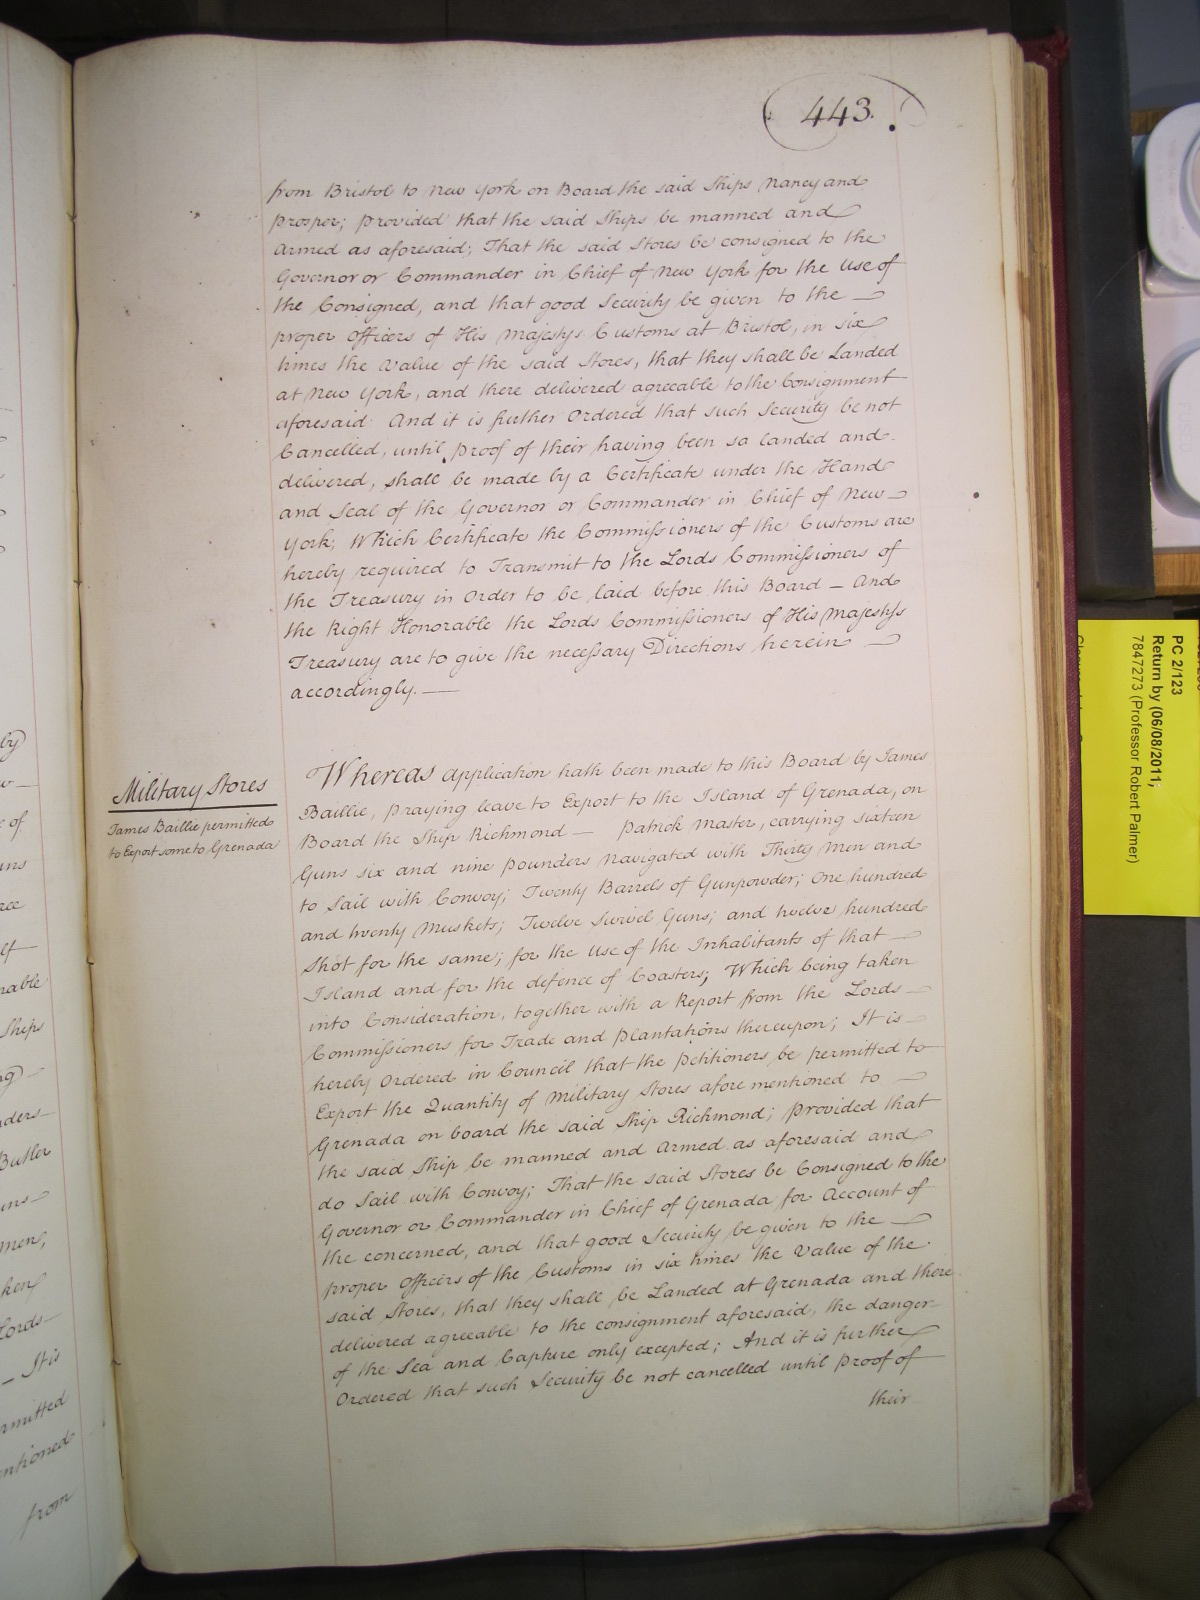 443.
from Bristol to New York on Board the said Ships Nancy and
Prosper; Provided that the said Ships be manned and
Armed as aforesaid; That the said Stores be consigned to the
Governor or Commander in Chief of New York for the Use of
the Consigned, and that good Security be given to the —
proper Officers of His Majestys Customs at Bristol, in six
times the Value of the said Stores, that they shall be Landed
at New York, and there delivered agreeable to the Consignment
aforesaid And it is further Ordered that such Security be not
Cancelled, until Proof of their having been so landed and
delivered, shall be made by a Certificate under the Hand
and Seal of the Governor or Commander in Chief of New —
York; Which Certificate the Commissioners of the Customs are
hereby required to Transmit to the Lords Commissioners of
the Treasury in Order to be laid before this Board — And
the Right Honorable the Lords Commissioners of His Majestys
Treasury are to give the necessary Directions herein —
accordingly. —
Military Stores
James Baillie permitted
to Export some to Grenada
Whereas Application hath been made to this Board by James
Baillie, Praying leave to Export to the Island of Grenada, on
Board the Ship Richmond — Patrick Master, carrying sixteen
Guns six and nine Pounders navigated with Thirty Men and
to Sail with Convoy; Twenty Barrels of Gunpowder; One hundred
and twenty Muskets; Twelve Swivel Guns; and twelve hundred
Shot for the same; for the Use of the Inhabitants of that —
Island and for the defence of Coasters; Which being taken
into Consideration, together with a Report from the Lords —
Commissioners for Trade and Plantations thereupon; It is —
hereby Ordered in Council that the Petitioners be permitted to
Export the Quantity of Military Stores afore mentioned to —
Grenada on board the said Ship Richmond; Provided that
the said Ship be manned and Armed as aforesaid and
do Sail with Convoy; That the said Stores be Consigned to the
Governor or Commander in Chief of Grenada for Account of
the concerned, and that good Security be given to the —
proper Officers of the Customs in six times the Value of the
said Stores, that they shall be Landed at Grenada and there
delivered agreeable to the consignment aforesaid, the danger
of the Sea and Capture only excepted; And it is further
Ordered that such Security be not cancelled until Proof of
their
by
w —
e of
uns
lf —
nable
Ships
ders —
Butler
men,
ken
Lords —
— It is
ermitted
entioned
from
PC 2/123
Return by (06/08/2011;
7847273 (Professor Robert Palmer)